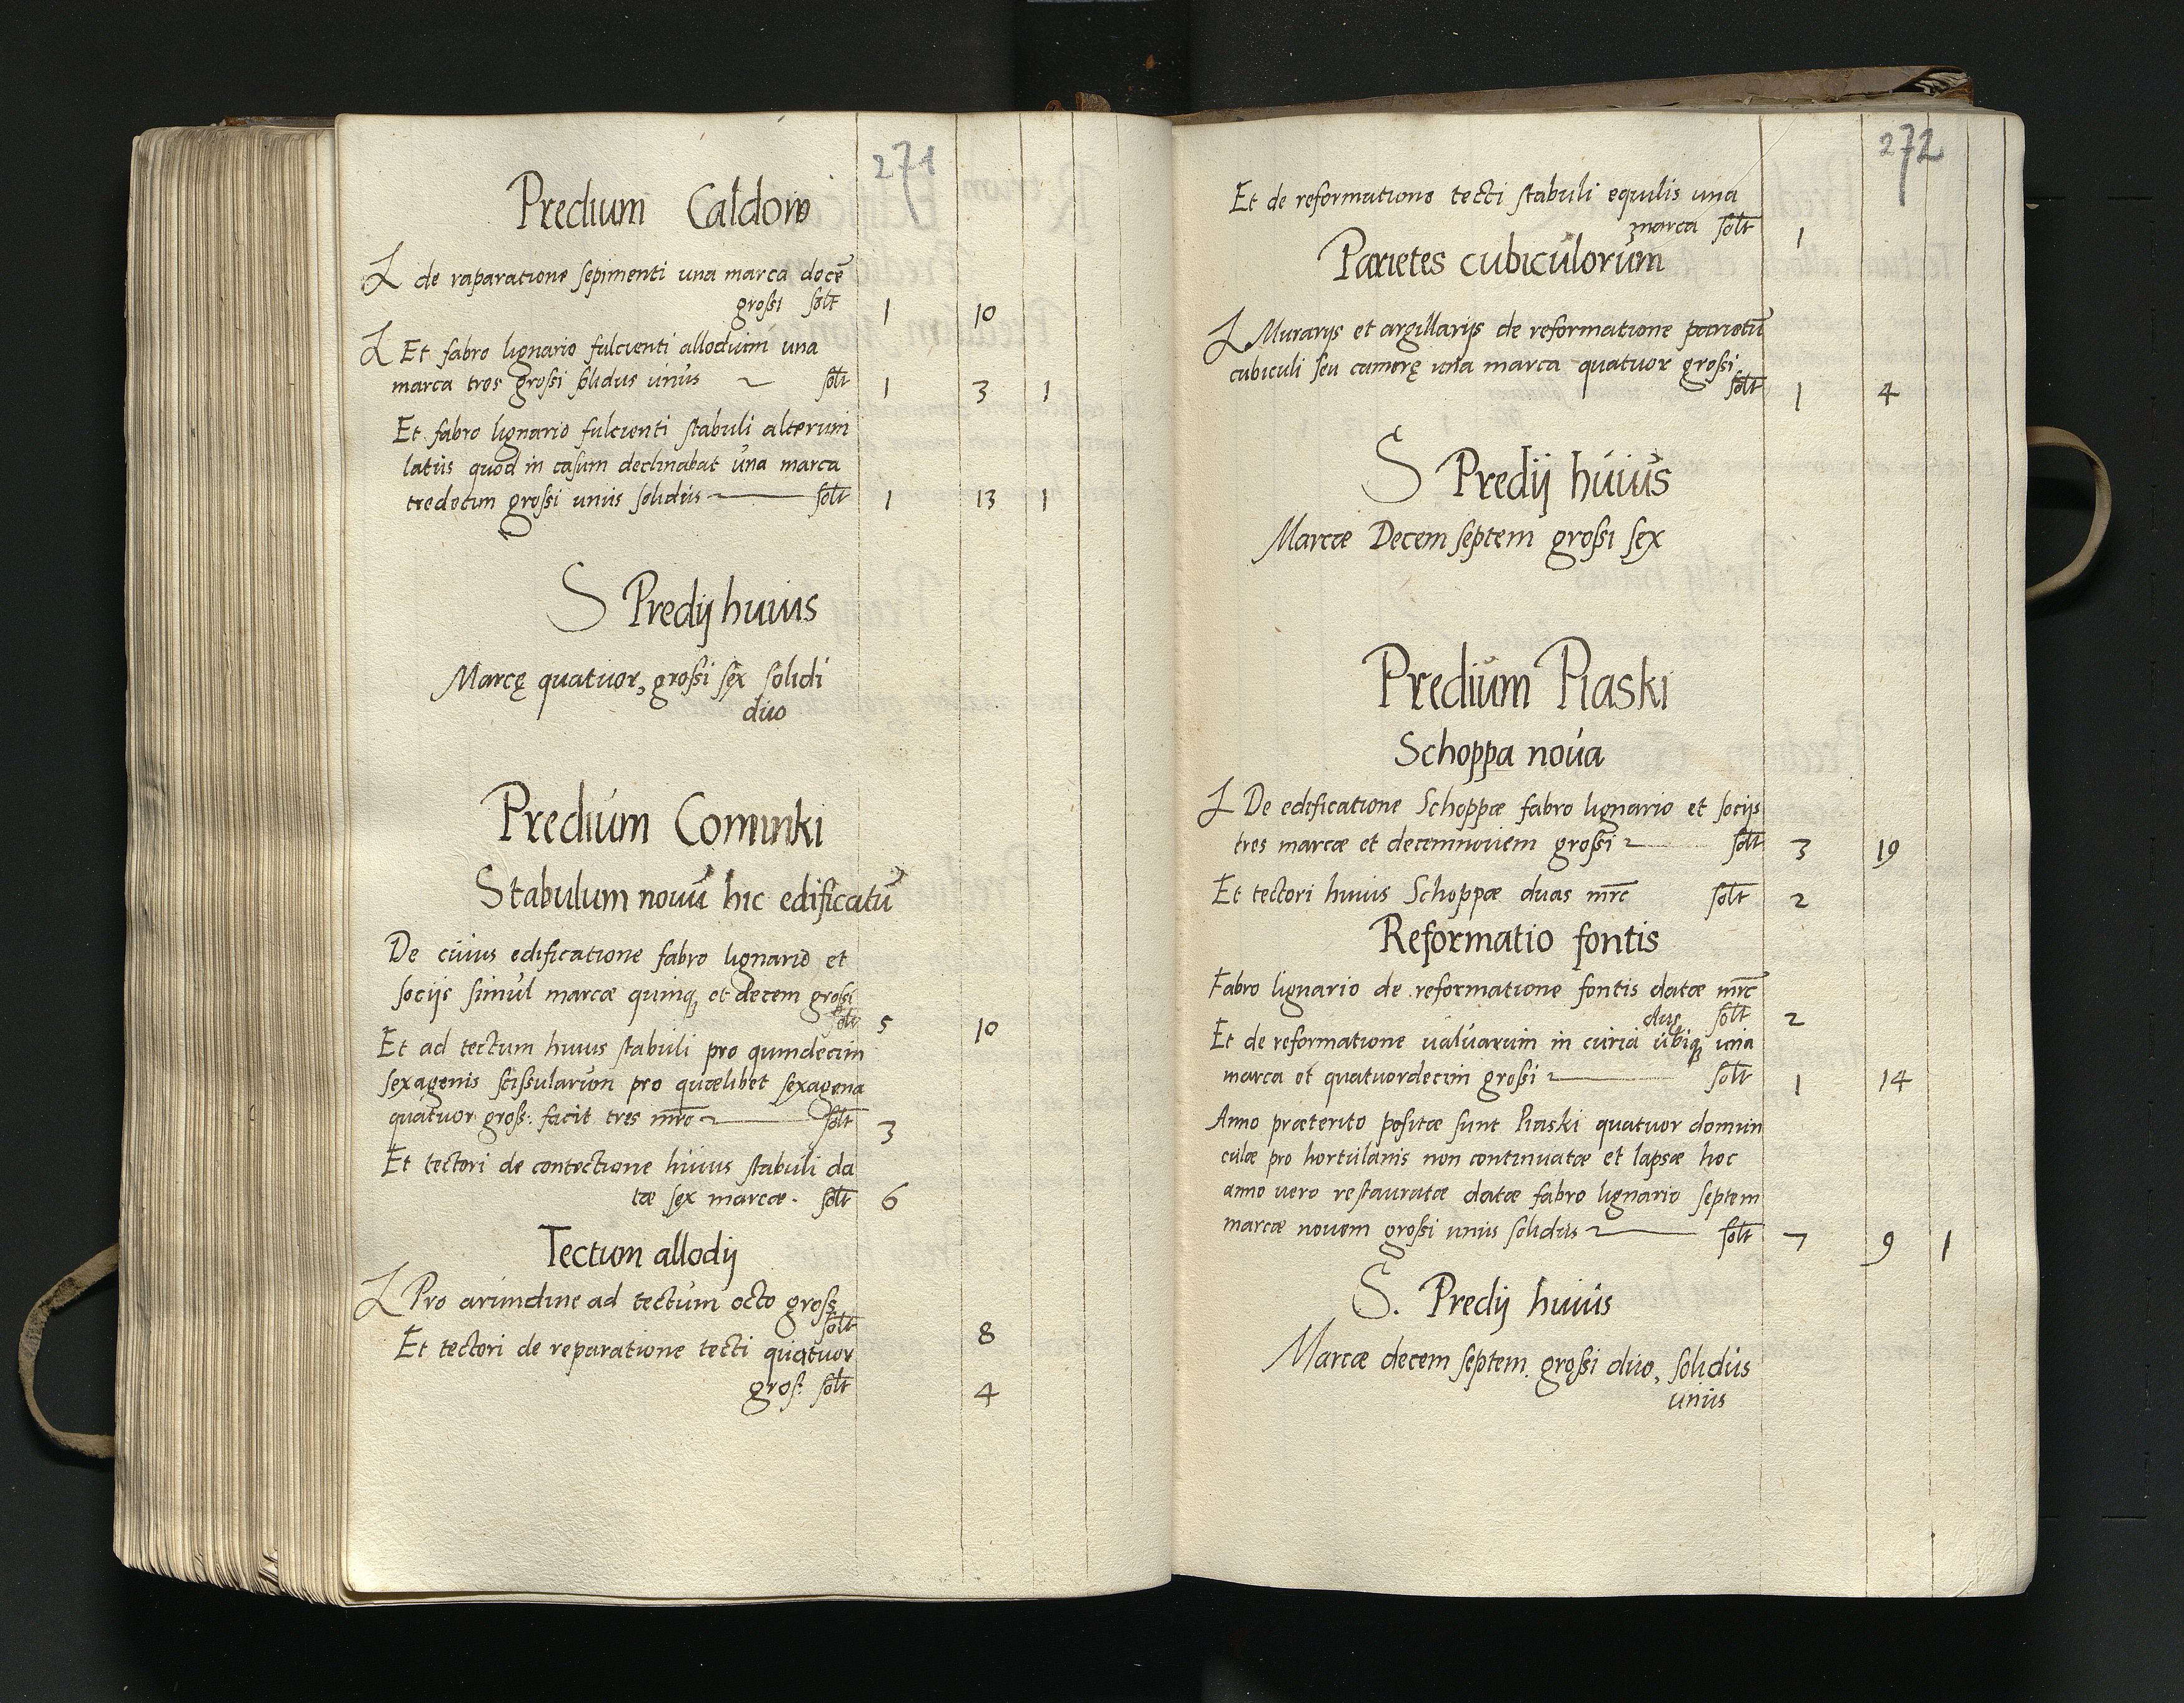 271
Predium Caldoni
de raparatione sepimenti una marca decē
grossi solt 1 10
Et fabro lignario fulcienti allodium una
marca tres grossi solidus unus solt 1 3 1
Et fabro lignario fulcienti stabuli alterum
latus quod in casum declinabat una marca
tredecim grossi unus solidus solt 1 13 1
S Predij huius
Marcę quatuor, grossi sex solidi
duo
Predium Cominki
Stabulum novū hic edificatū
De cuius edificatione fabro lignario et
socijs simul marcæ quinq; et decem grossi
solt 5 10
Et ad tectum huius stabuli pro quindecim
sexagenis scissularum pro quælibet sexagena
quatuor gross: facit tres mrc solt 3
Et tectori de contectione huius stabuli da
tæ sex marcæ. solt 6
Tectum allodij
Pro arundine ad tectum octo gross
solt 8
Et tectori de reparatione tecti quatuor
gros: solt 4
272
Et de reformatione tecti stabuli equilis una
marca solt 1
Parietes cubiculorum
Murarijs et argillarijs de reformatione parietū
cubiculi seu camerę una marca quatuor grossi
solt 1 4
S Predij huius
Marcæ Decem septem grossi sex
Predium Piaski
Schoppa nova
De edificatione Schoppæ fabro lignario et socijs
tres marcæ et decemnovem grossi solt 3 19
Et tectori huius Schoppæ duas mrc solt 2
Reformatio fontis
Fabro lignario de reformatione fontis datæ mrc
duę solt 2
Et de reformatione valuarum in curia ubiq; una
marca et quatuordecim grossi solt 1 14
Anno præterito positæ sunt Piaski quatuor domun
culæ pro hortulanis non continuatæ et lapsæ hoc
anno vero restauratæ datæ fabro lignario septem
marcæ novem grossi unus solidus solt 7 9 1
S. Predij huius
Marcæ decem septem. grossi duo, solidus
unus